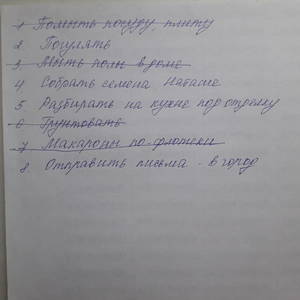 1 Помыть посуду плиту
2. Погулять
3. Мыть полы в доме
4 Собрать семена Наташе
5 Разбирать на кухне
6 Грунтовать
7 Макароны по-флотски
8. Отправить письма - в город